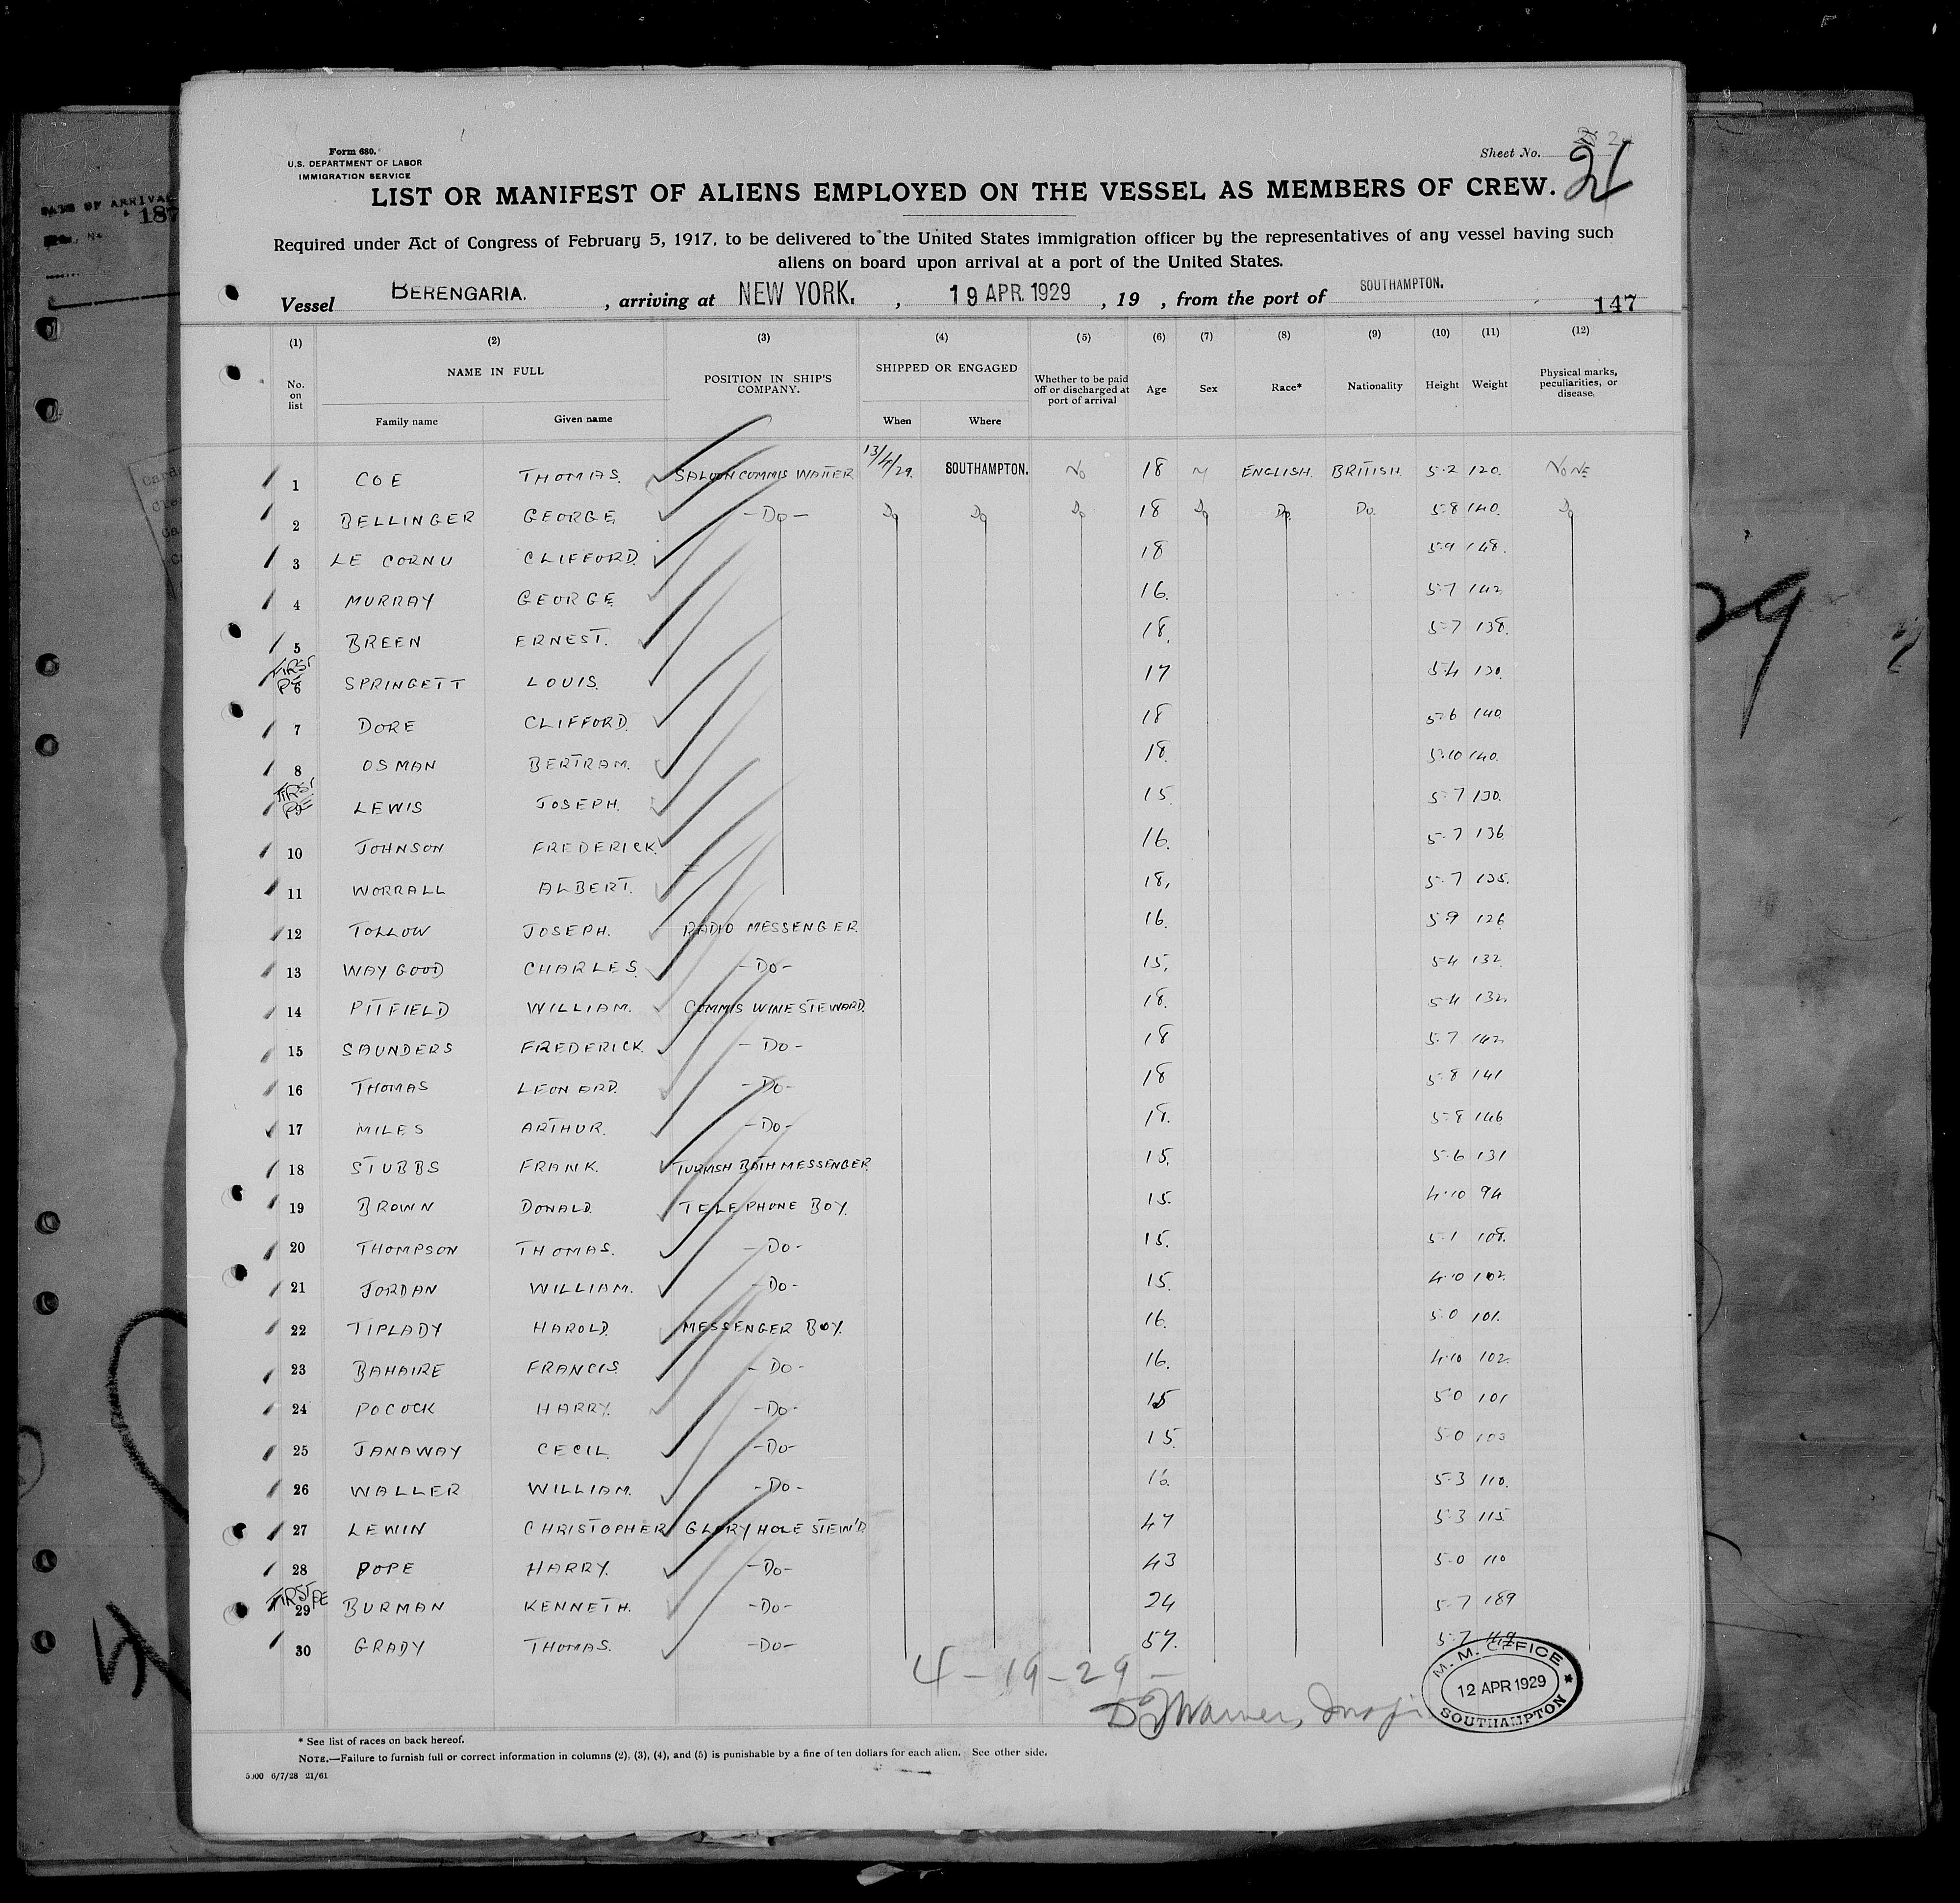 Form 680.
U.S. DEPARTMENT OF LABOR
IMMIGRATION SERVICE
Sheet No. 21
LIST OR MANIFEST OF ALIENS EMPLOYED ON THE VESSEL AS MEMBERS OF CREW.
Required under Act of Congress of February 5, 1917, to be delivered to the United States immigration officer by the representatives of any vessel having such
aliens on board upon arrival at a port of the United States.
Vessel BERENGARIA. , arriving at NEW YORK. , 19 APR. 1929 , 19 , from the port of SOUTHAMPTON. 147
(1) (2) (3) (4) (5) (6) (7) (8) (9) (10) (11) (12)
No. on list NAME IN FULL Family name Given name POSITION IN SHIP'S COMPANY. SHIPPED OR ENGAGED When Where Whether to be paid off or discharged at port of arrival Age Sex Race* Nationality Height Weight Physical marks, peculiarities, or disease.
1 COE THOMAS. SALOON COMMIS WAITER 13/4/29. SOUTHAMPTON. No 18 M ENGLISH. BRITISH 5-2 120. NONE
2 BELLINGER GEORGE -Do- Do Do Do 18 Do Do. Do. 5-8 140. Do
3 LE CORNU CLIFFORD. 18 5-9 148.
4 MURRAY GEORGE 16. 5-7 142
5 BREEN ERNEST. 18. 5-7 138.
FIRST PE 6 SPRINGETT LOUIS. 17 5-4 130.
7 DORE CLIFFORD. 18 5-6 140.
8 OSMAN BERTRAM. 18. 5-10 140.
FIRST PE LEWIS JOSEPH. 15. 5-7 130.
10 JOHNSON FREDERICK. 16. 5-7 136
11 WORRALL ALBERT. 18. 5-7 135.
12 TOLLOW JOSEPH. RADIO MESSENGER. 16. 5-9 126
13 WAYGOOD CHARLES. -Do- 15. 5-4 132
14 PITFIELD WILLIAM. COMMIS WINE STEWARD. 18. 5-4 132.
15 SAUNDERS FREDERICK. -Do- 18 5-7 142
16 THOMAS LEONARD. -Do- 18 5-8 141
17 MILES ARTHUR. -Do- 18. 5-8 146
18 STUBBS FRANK. TURKISH BATH MESSENGER. 15. 5-6 131
19 BROWN DONALD. TELEPHONE BOY. 15. 4-10 94
20 THOMPSON THOMAS. -Do- 15. 5-1 108.
21 JORDAN WILLIAM. -Do- 15. 4-10 102.
22 TIPLADY HAROLD. MESSENGER BOY. 16. 5-0 101.
23 BAHAIRE FRANCIS. -Do- 16. 4-10 102.
24 POCOCK HARRY. -Do- 15 5-0 101
25 JANAWAY CECIL. -Do- 15. 5-0 103
26 WALLER WILLIAM. -Do- 16. 5-3 110.
27 LEWIN CHRISTOPHER GLORY HOLE STEW'D. 47 5-3 115
28 POPE HARRY. -Do- 43 5-0 110
FIRST PE 29 BURMAN KENNETH. -Do- 24 5-7 189
30 GRADY THOMAS. -Do- 57. 5-7
4-19-29-
Warner,
M. M. OFFICE
12 APR 1929
SOUTHAMPTON
* See list of races on back hereof.
NOTE.—Failure to furnish full or correct information in columns (2), (3), (4), and (5) is punishable by a fine of ten dollars for each alien. See other side.
6/7/28 21/61
DATE OF ARRIVAL
187
29